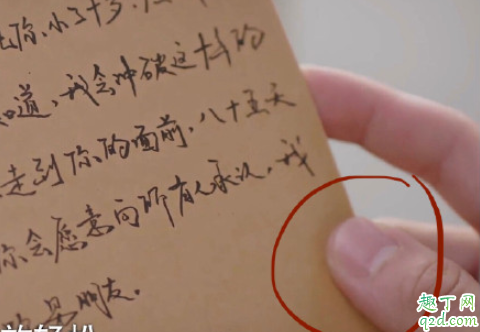 你,小了十多,
道,我会冲破这样的
走到你的面前,八十五天
你会愿意向所有人承认,我
是朋友.
放轻松
趣丁网
q2d.com